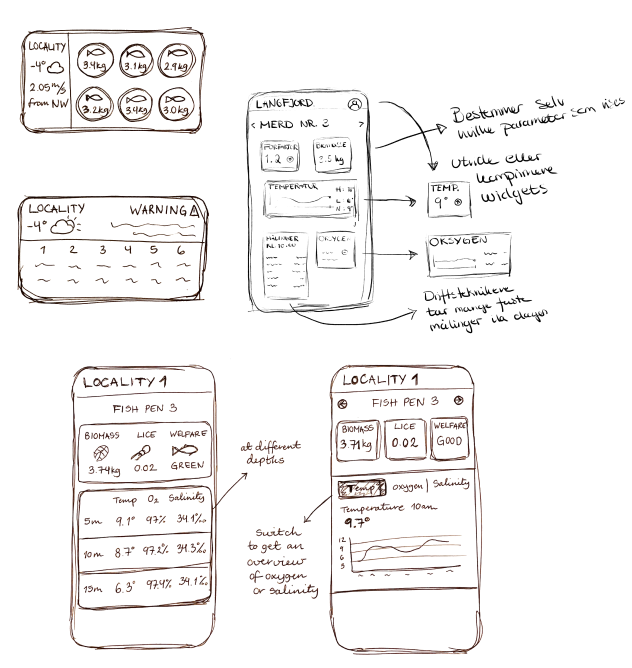 LOCALITY
-4°
2.05 m/s
from NW
3.4kg 3.1kg 2.9kg
3.2kg 3.4kg 3.0kg
LOCALITY WARNING
-4°
1 2 3 4 5 6
LANGFJORD
< MERD NR. 3 >
1.2
2.5 kg
TEMPERATUR
H:
L:
N:
MÅLINGER
KL. 10.00
OKSYGEN
Bestemmer selv
hvilke parameter som vises
Utvide eller
komprimere
widgets
TEMP.
9°
OKSYGEN
Driftsteknikere
tar mange faste
målinger ila dagen
LOCALITY 1
FISH PEN 3
BIOMASS LICE WELFARE
3.74kg 0.02 GREEN
Temp O₂ Salinity
5m 9.1° 97% 34.1‰
10m 8.7° 97.2% 34.3‰
15m 6.3° 97.4% 34.1‰
at different
depths
Switch
to get an
overview
of oxygen
or salinity
LOCALITY 1
FISH PEN 3
BIOMASS LICE WELFARE
3.71kg 0.02 GOOD
Temp oxygen | Salinity
Temperature 10am
9.7°
12
9
6
3